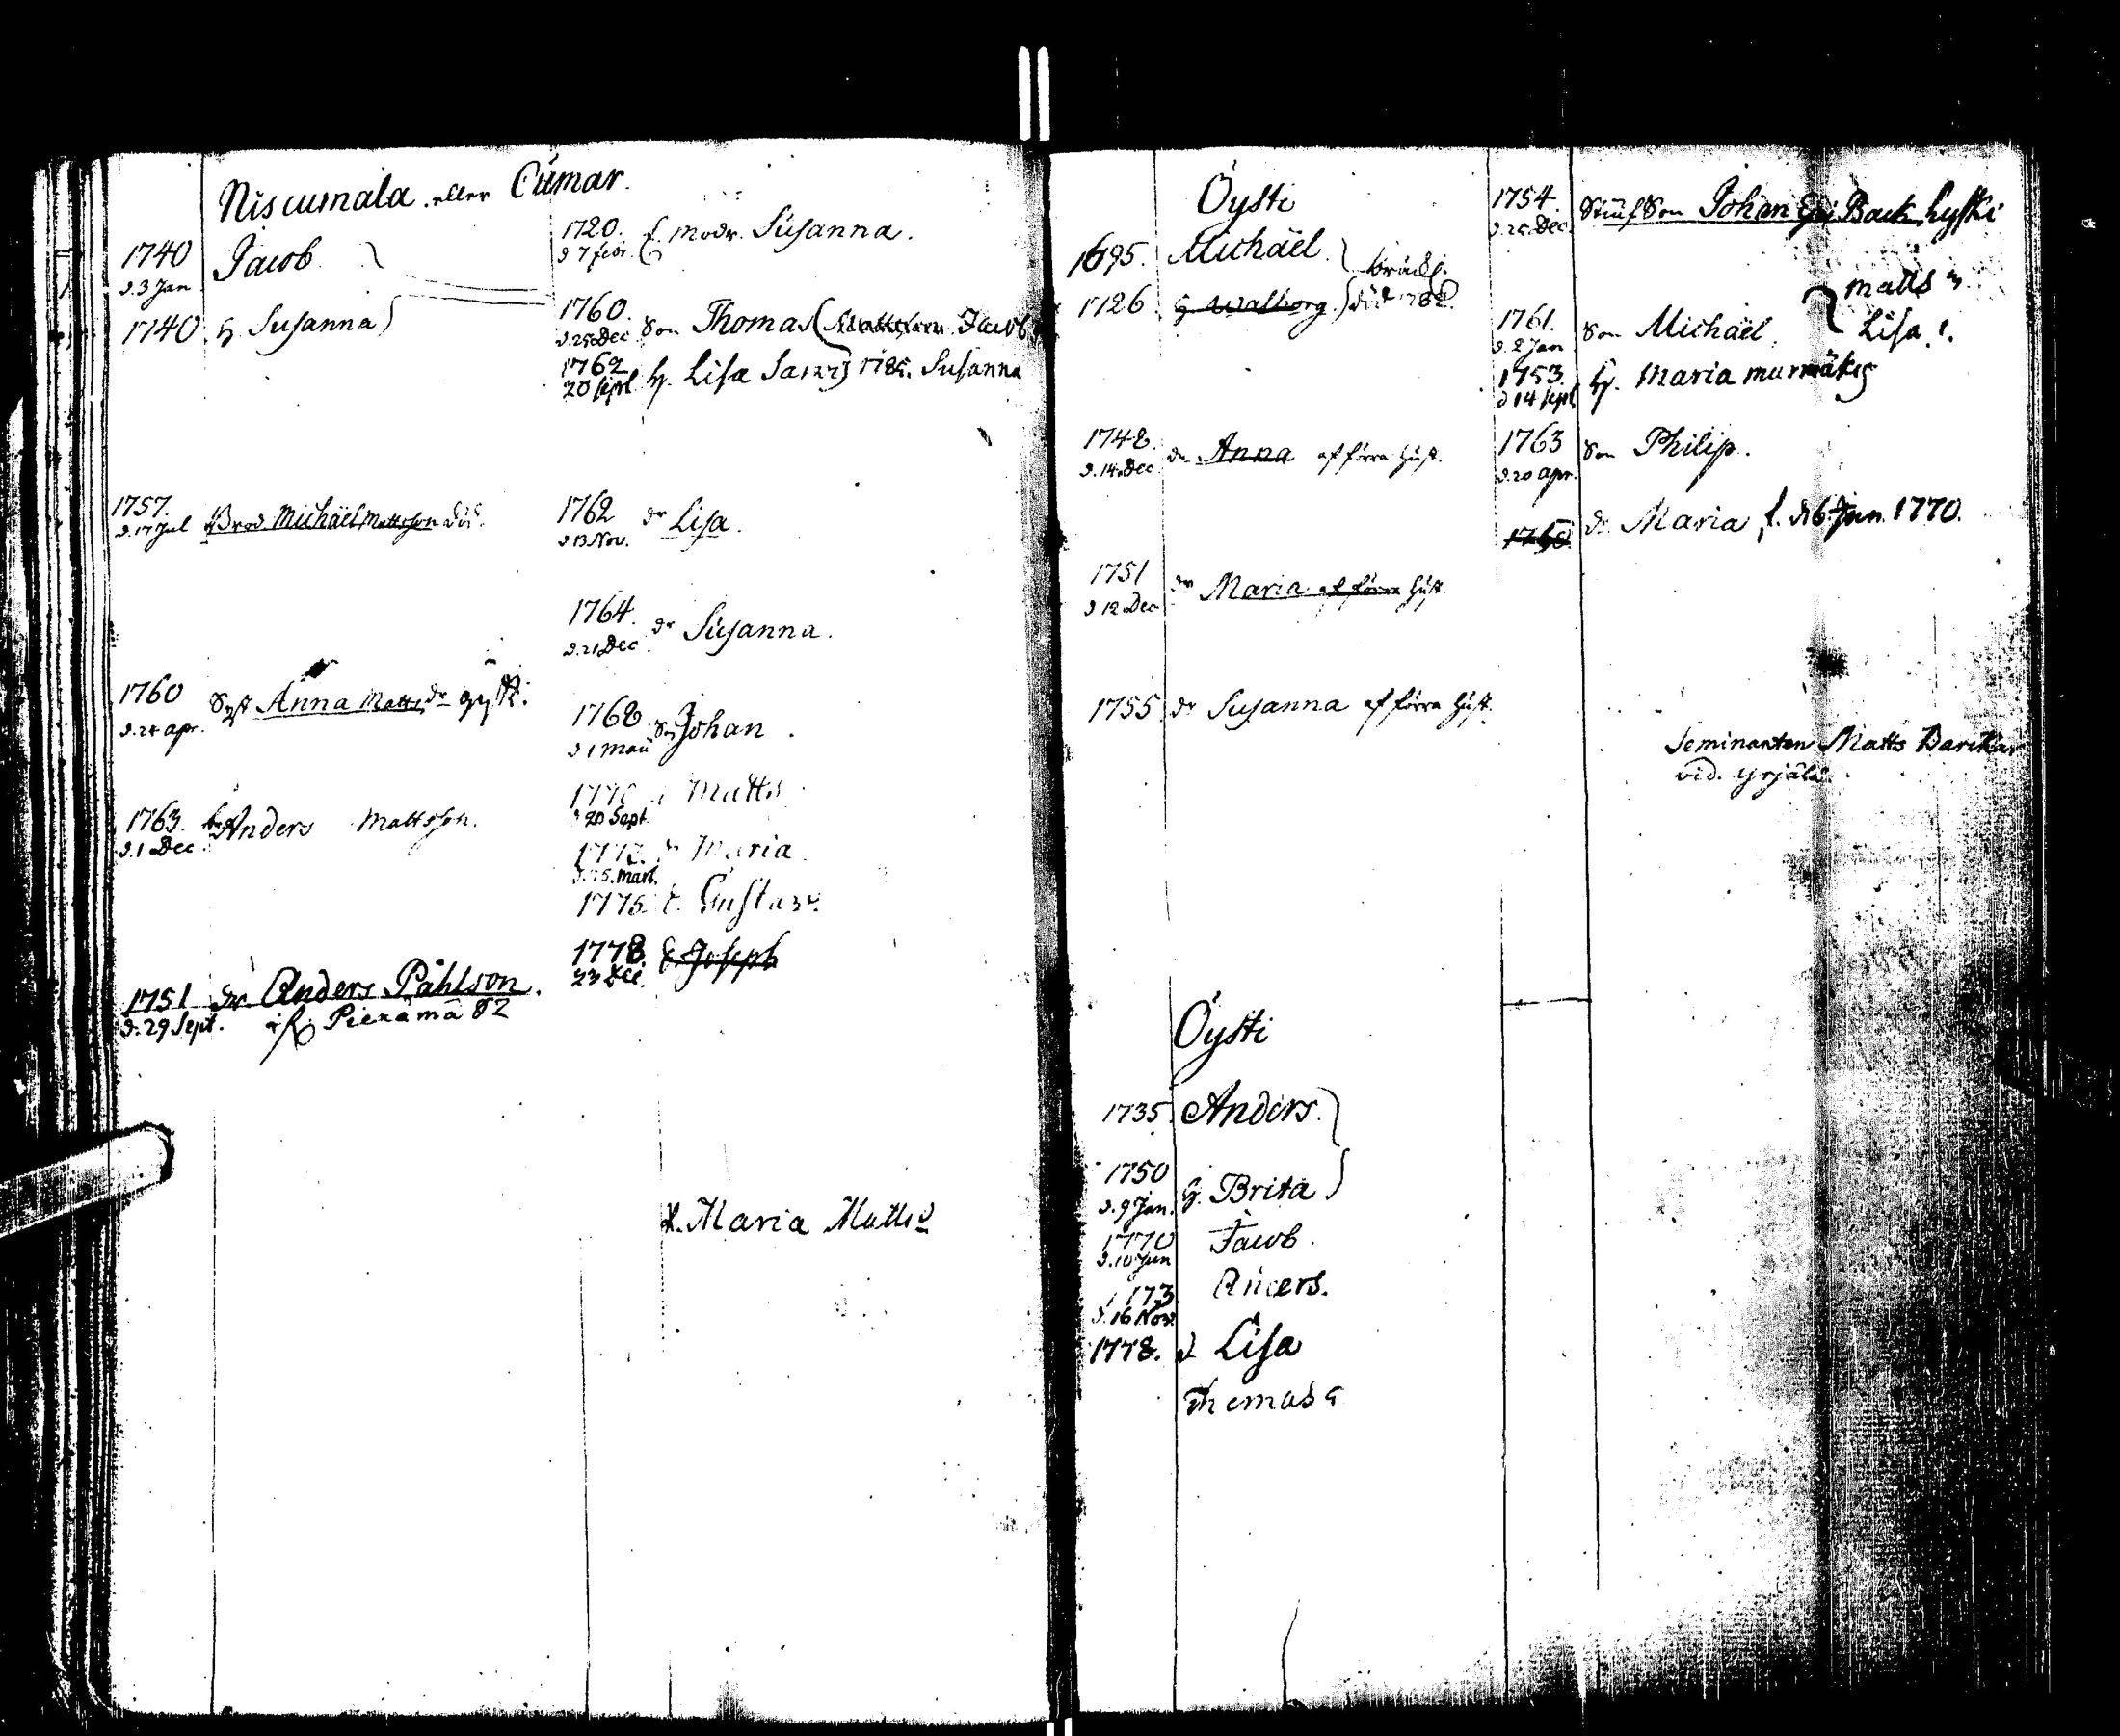 Niscumala eller Cumar.
1740 Jacob
d. 3 Jan
1740 h Susanna
1757. Brod. Michäel Mattsson död.
d. 17 Jul
1760 Syst Anna Matts dr
d. 24 apr.
1763. Anders Mattsson.
d. 1 Dec
1751 Anders Påhlson.
d. 29 Sept. Pieramä 82
1720. f. modr. Susanna.
d 7 febr.
1760. Son Thomas Jacob
d. 25 Dec
1762 h. Lisa 1785. Susanna
20 sept
1762 dr Lisa.
d 13 Nov.
1764. dr Susanna.
d. 21 Dec
1768 Johan
d 1 maii
Matts
20 Sept
Maria
d. 25. mart.
1775 Gustav.
1778. Joseph
23 Dec
Maria Matts d
Öysti
1695. Michäel.
1726 h Walborg död 1782
1748 dr Anna af förra hust.
d. 14 Dec
1751 dr Maria af förra hust
d 12 Dec
1755 dr Susanna af förra hust.
1754. Stiuf Son Johan
d. 25 Dec.
Matts
1761. Son Michäel Lisa
d. 2 Jan
1753. h. Maria
d 14 sept
1763 Son Philip.
d. 20 apr.
dr Maria f. d 6 Jun. 1770.
Seminanten Matts
vid.
Öysti
1735. Anders.
1750 h. Brita
d. 9 Jan.
1770 Jacob.
d. 10 Jun
1773 Anders.
d. 16 Nov
1778. d Lisa
Thomas